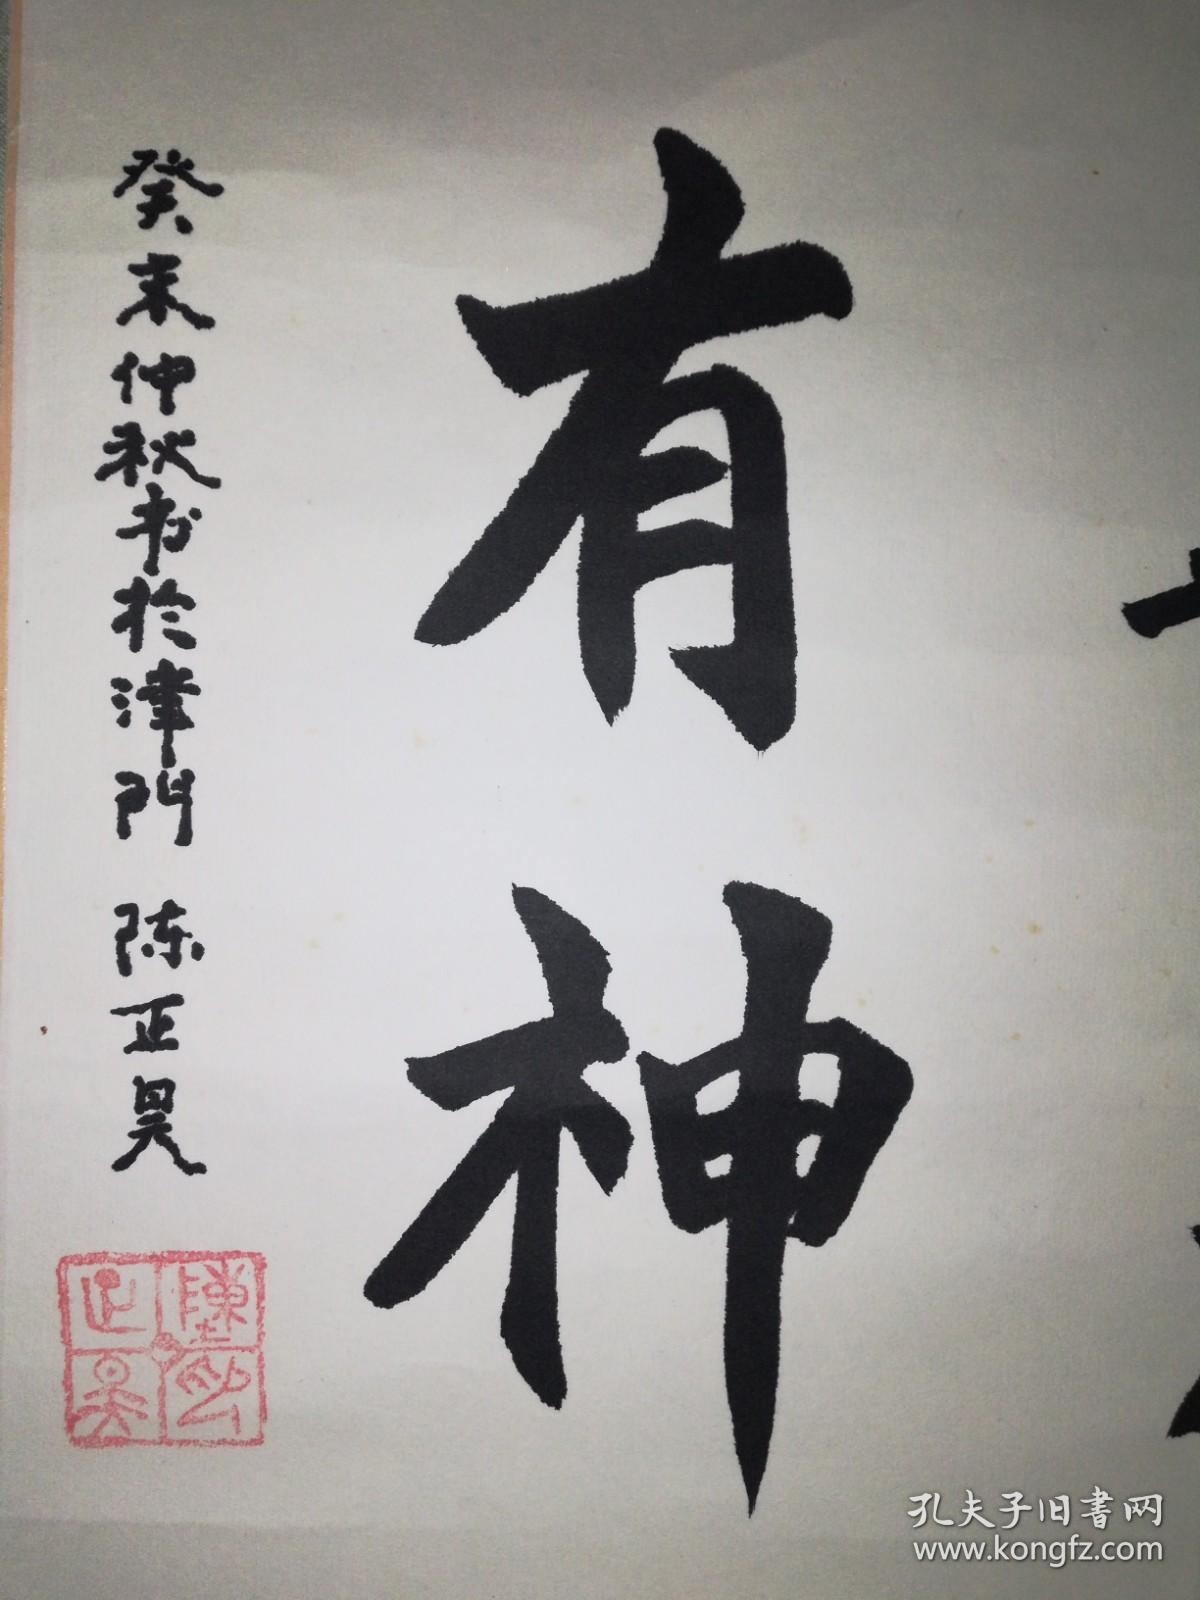 有神
癸未仲秋书於津門 陈正昊
陳正昊
孔夫子旧書网
www.kongfz.com